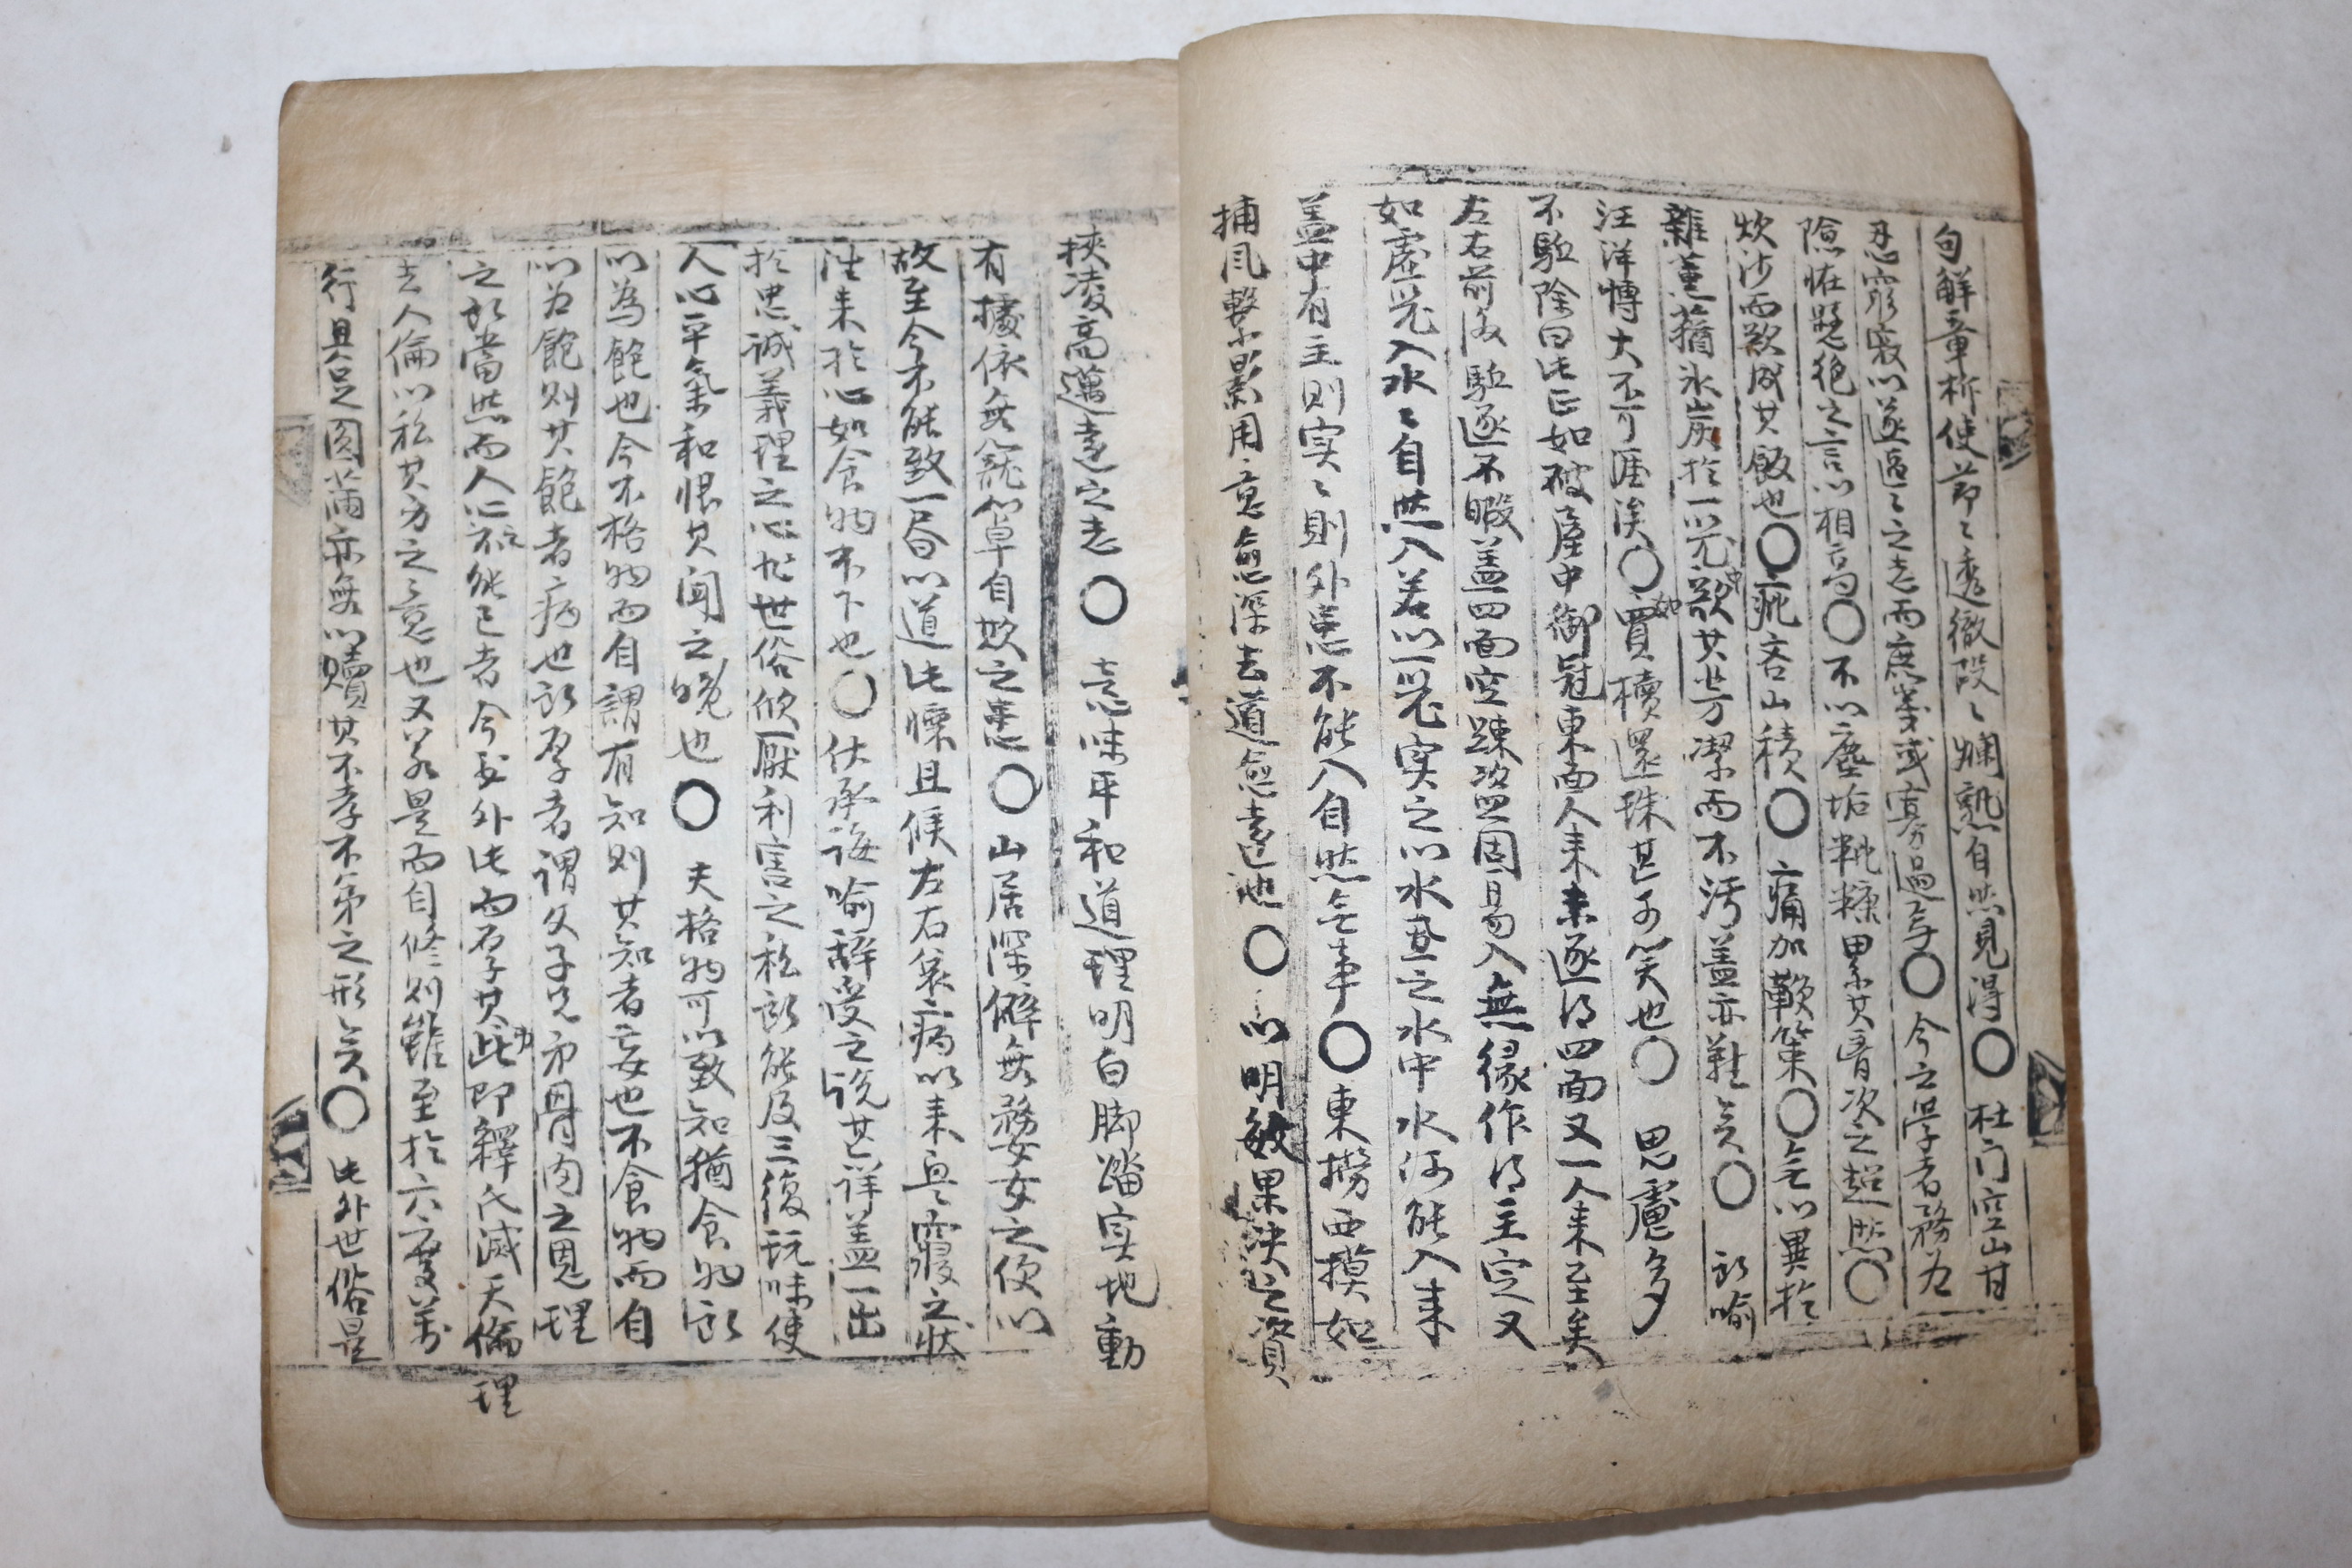 句解章析使節〻透徹段〻爛熟自然見得○杜門空山甘
忍窮寂以遂區〻之志而庶幾或寡過矣○今之学者務为
險怪懸絶之言以相高○不以塵垢粃糠累其胷次之超然○
炊沙而欲成其飯也○疵吝山積○痛加鞭策○無以異於
雜薰蕕氷炭於一器中欲其芳潔而不汚盖亦難矣○所喻
汪洋慱大不可涯涘○如買櫝還珠甚可笑也○思慮多
不駈除曰此正如破屋中禦冠東面人来未逐得四面又一人来至矣
左右前後駈逐不暇盖四面空踈盗固易入無縁作得主定又
如虚器入水〻自然入若以一器实之以水置之水中水何能入来
盖中有主則実〻則外患不能入自然無事○東撈西摸如
捕風繫影用意愈深去道愈遠也○以明敏果决之資
挾凌高邁遠之志○意味平和道理明白脚踏实地動
有據依無籠罩自欺之患○山居深僻無務女之便以
故至今不能致一唇以道此懷且候左右衰病以来無寢之状
往来於心如食物不下也○伏承誨喻辞受之説甚详盖一出
於忠誠義理之心非世俗欣厭利害之私所能及三復玩味使
人心平氣和恨其聞之晩也○夫格物可以致知猶食物所
以為飽也今不格物而自謂有知則其知者妄也不食物而自
以为飽則其飽者病也所存者謂父子兄弟骨肉之恩理
之所當然而人心不能已者今必外此而存其此即釋氏滅天倫理
去人倫以私其方之之意也又若是而自修則雖至於六度萬
行具足圓滿亦無以贖其不孝不弟之形矣○此外世俗是